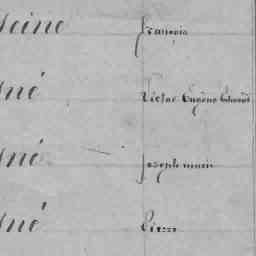 eine François
né Victor Eugène Edouard
né joseph marie
né Pierre